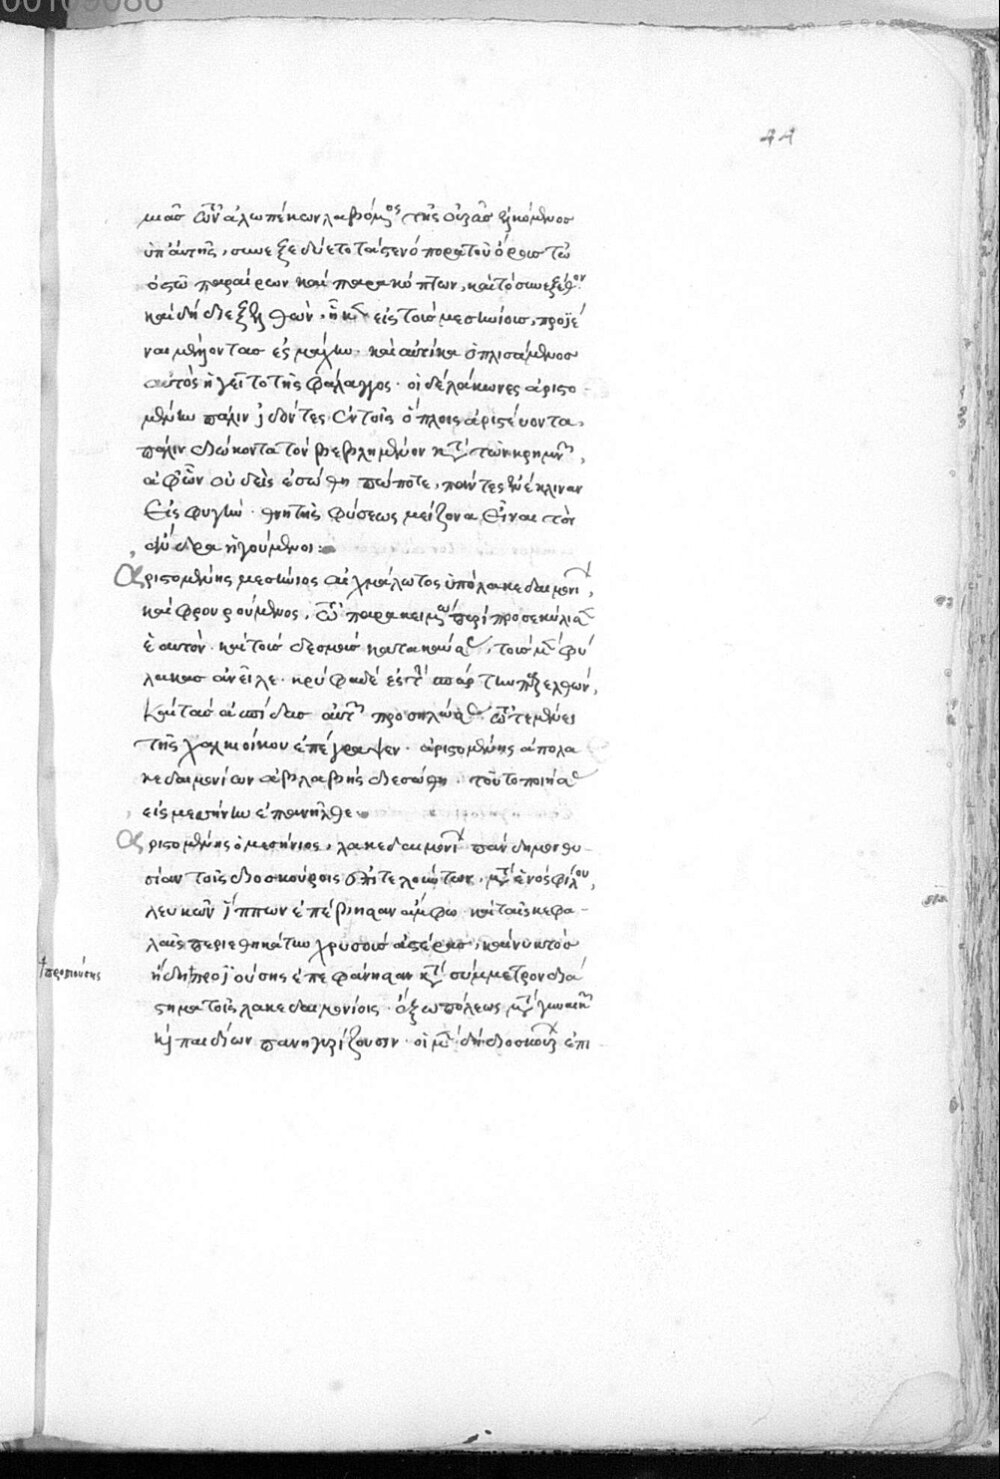 00109086
44
μιᾶς τῶν ἀλωπέκων λαβόμενος τῆς οὐρᾶς ἑλκόμενος
ὑπ' αὐτῆς, συνεξεδύετο τὰ στενόπορα τοῦ ὄρους τὼ
παραίρων καὶ παρακόπτων, καὶ τὸ
καὶ δὴ διεξελθὼν, ἧκεν εἰς τοὺς μεσηνίους, προϊέ
ναι μέλλοντας ἐς μάχην. καὶ αὐτίκα ὁπλισάμενος
αὐτὸς ἡγεῖτο τῆς φάλαγγος. οἱ δὲ λάκωνες ἀριστο
μένην πάλιν ἰδόντες ἐν τοῖς ὅπλοις ἀριστεύοντα,
πάλιν διώκοντα τὸν βεβλημένον κατὰ τῶν κρημνῶν,
ἀφ' ὧν οὐδεὶς ἐσώθη πώποτε, πάντες ἐνέκλιναν
εἰς φυγὴν. θνητῆς φύσεως μείζονα εἶναι τὸν
ἄνδρα ἡγούμενοι:
Ἀριστομένης μεσήνιος αἰχμάλωτος ὑπὸ λακεδαιμονίων,
καὶ φρουρούμενος, τῶ παρακειμένω πυρὶ προσεκύλισεν
ἑαυτὸν. καὶ τοὺς δεσμοὺς κατακαύσας, τοὺς μὲν φύ
λακας ἀνεῖλε. κρύφα δὲ ἐς τὴν σπάρτην παρεξελθὼν,
καὶ τὰς ἀσπίδας αὐτῶν προσηλώσας τῶ τεμένει
τῆς χαλκιοίκου ἐπέγραψεν. ἀριστομένης ἀπὸ λα
κεδαιμονίων ἀβλαβὴς διεσώθη. τοῦτο ποιήσας
εἰς μεσήνην ἐπανῆλθε.
Ἀριστομένης ὁ μεσήνιος, λακεδαιμονίων πάνδημον θυ-
σίαν τοῖς διοσκούροις ἐπιτελούντων, μετὰ ἑνὸς φίλου,
λευκῶν ἵππων ἐπέβησαν ἄμφω. καὶ ταῖς κεφα-
λαῖς περιεθηκάτην χρυσοὺς ἀστέρας, καὶ νυκτὸς
ἤδη προϊούσης ἐπεφάνησαν κατὰ σύμμετρον διά
στημα τοῖς λακεδαιμονίοις. ἔξω πόλεως μετὰ γυναικῶν
καὶ παιδίων πανηγυρίζουσιν. οἱ μὲν δὴ διοσκούρων ἐπι
προσιούσης